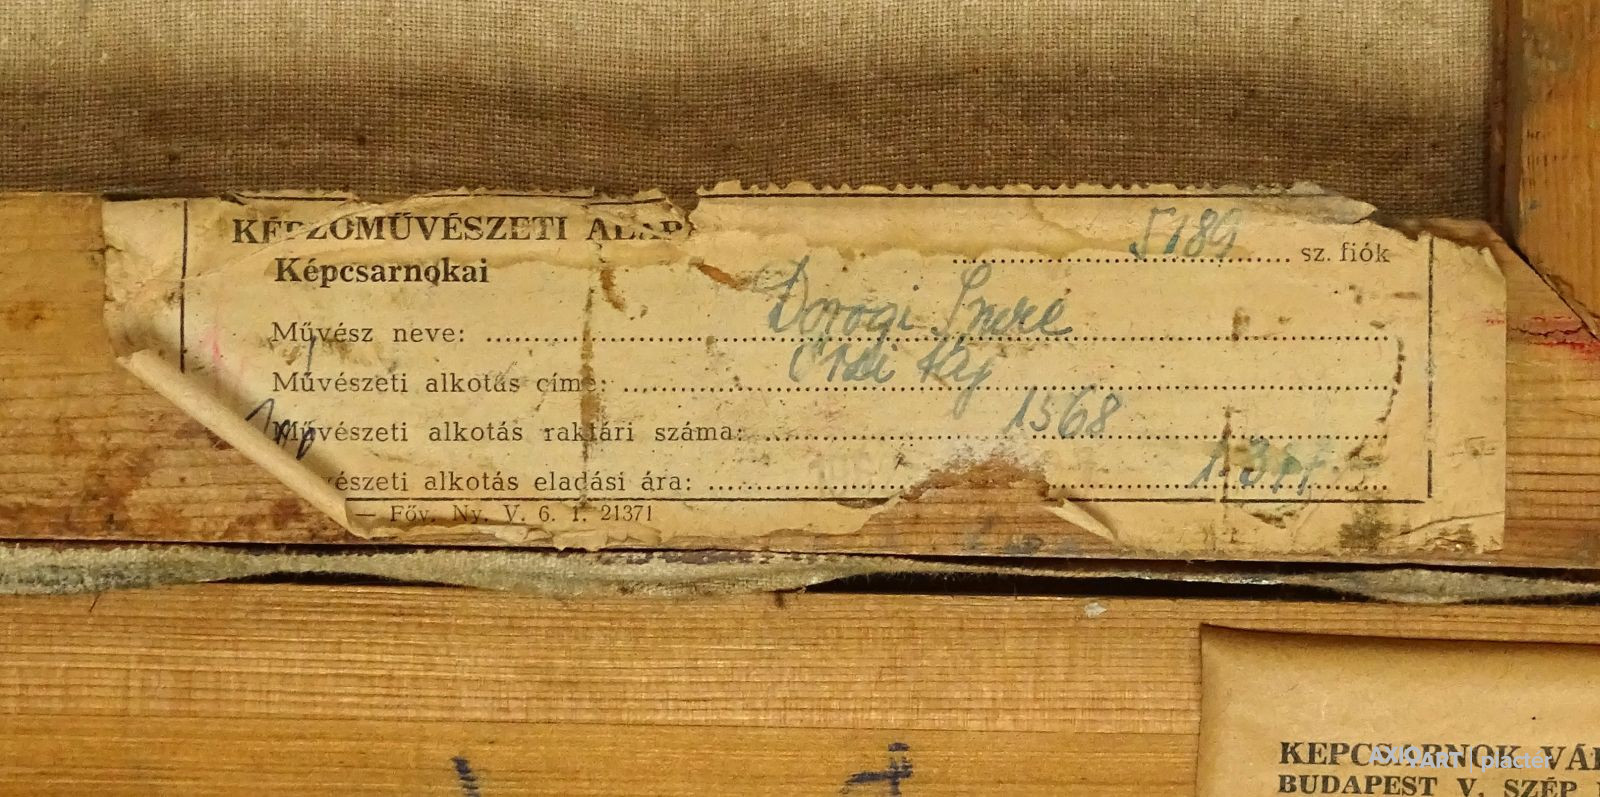 KÉPZŐMŰVÉSZETI ALAP
Képcsarnokai
5189 sz. fiók
Művész neve: Dorogi Imre
Művészeti alkotás címe:
Művészeti alkotás raktári száma: 1568
vészeti alkotás eladási ára:
— Főv. Ny. V. 6. 1. 21371
KEPCSARNOK VÁL
BUDAPEST V. SZÉP